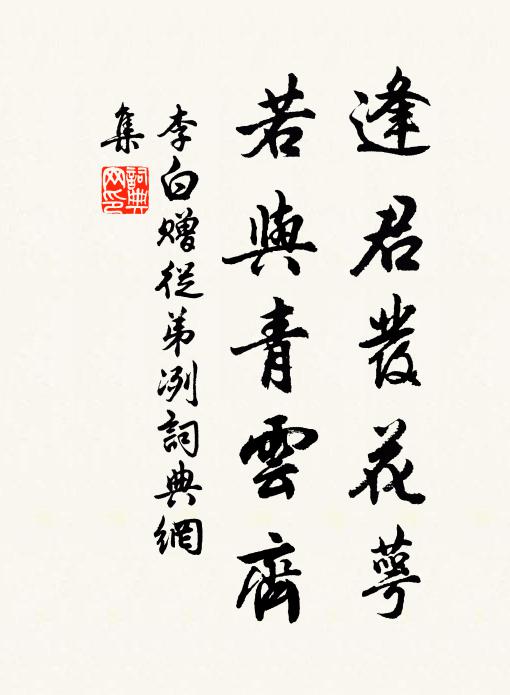 逢君發花萼
若與青雲齊
李白贈從弟冽詞典網
集
詞典
网印